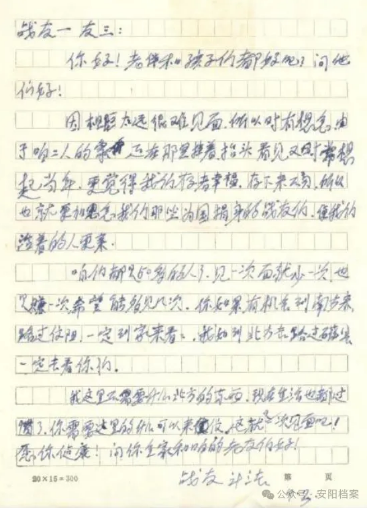 战友一友三：
你好！老伴和孩子们都好吧？问他
们好！
因相距太远很难见面，所以时有想念，由
于咱二人的 还在那里挂着，抬头看见又时常想
起当年，更觉得我们存者幸福，存下来不易，所以
也就更想念我们那些为国捐身的战友们，使我们
活着的人更亲。
咱们都是60多的人了，见一次面就少一次，也
希望能看见几次。你如果有机会到南方来，
路过信阳，一定到家来看看，我如到北方去路过
一定去看你们。
我这里不需要什么北方的东西，现在生活也都过
惯了，你需要这里的什么可以来信，
愿你健康！问你全家和咱的老友们好！
战友
20×15=300
第 页
公众号·安阳档案